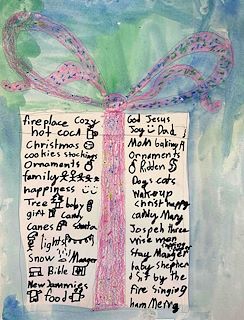 fireplace Cozy
hot coco
Christmas
cookies stockings
Ornaments
family
happiness
Tree baby
gift candy
Canes Santa
lights
Snow Manger
Bible
New Jammies
food
God Jesus
Joy Dad
MoM baking
Ornaments
Kidden
Dogs cats
Wake up
christ happy
candy Mary
Jospeh three
wise man
Stay Manger
baby shepherd
sit by the
fire singing
ham Merry